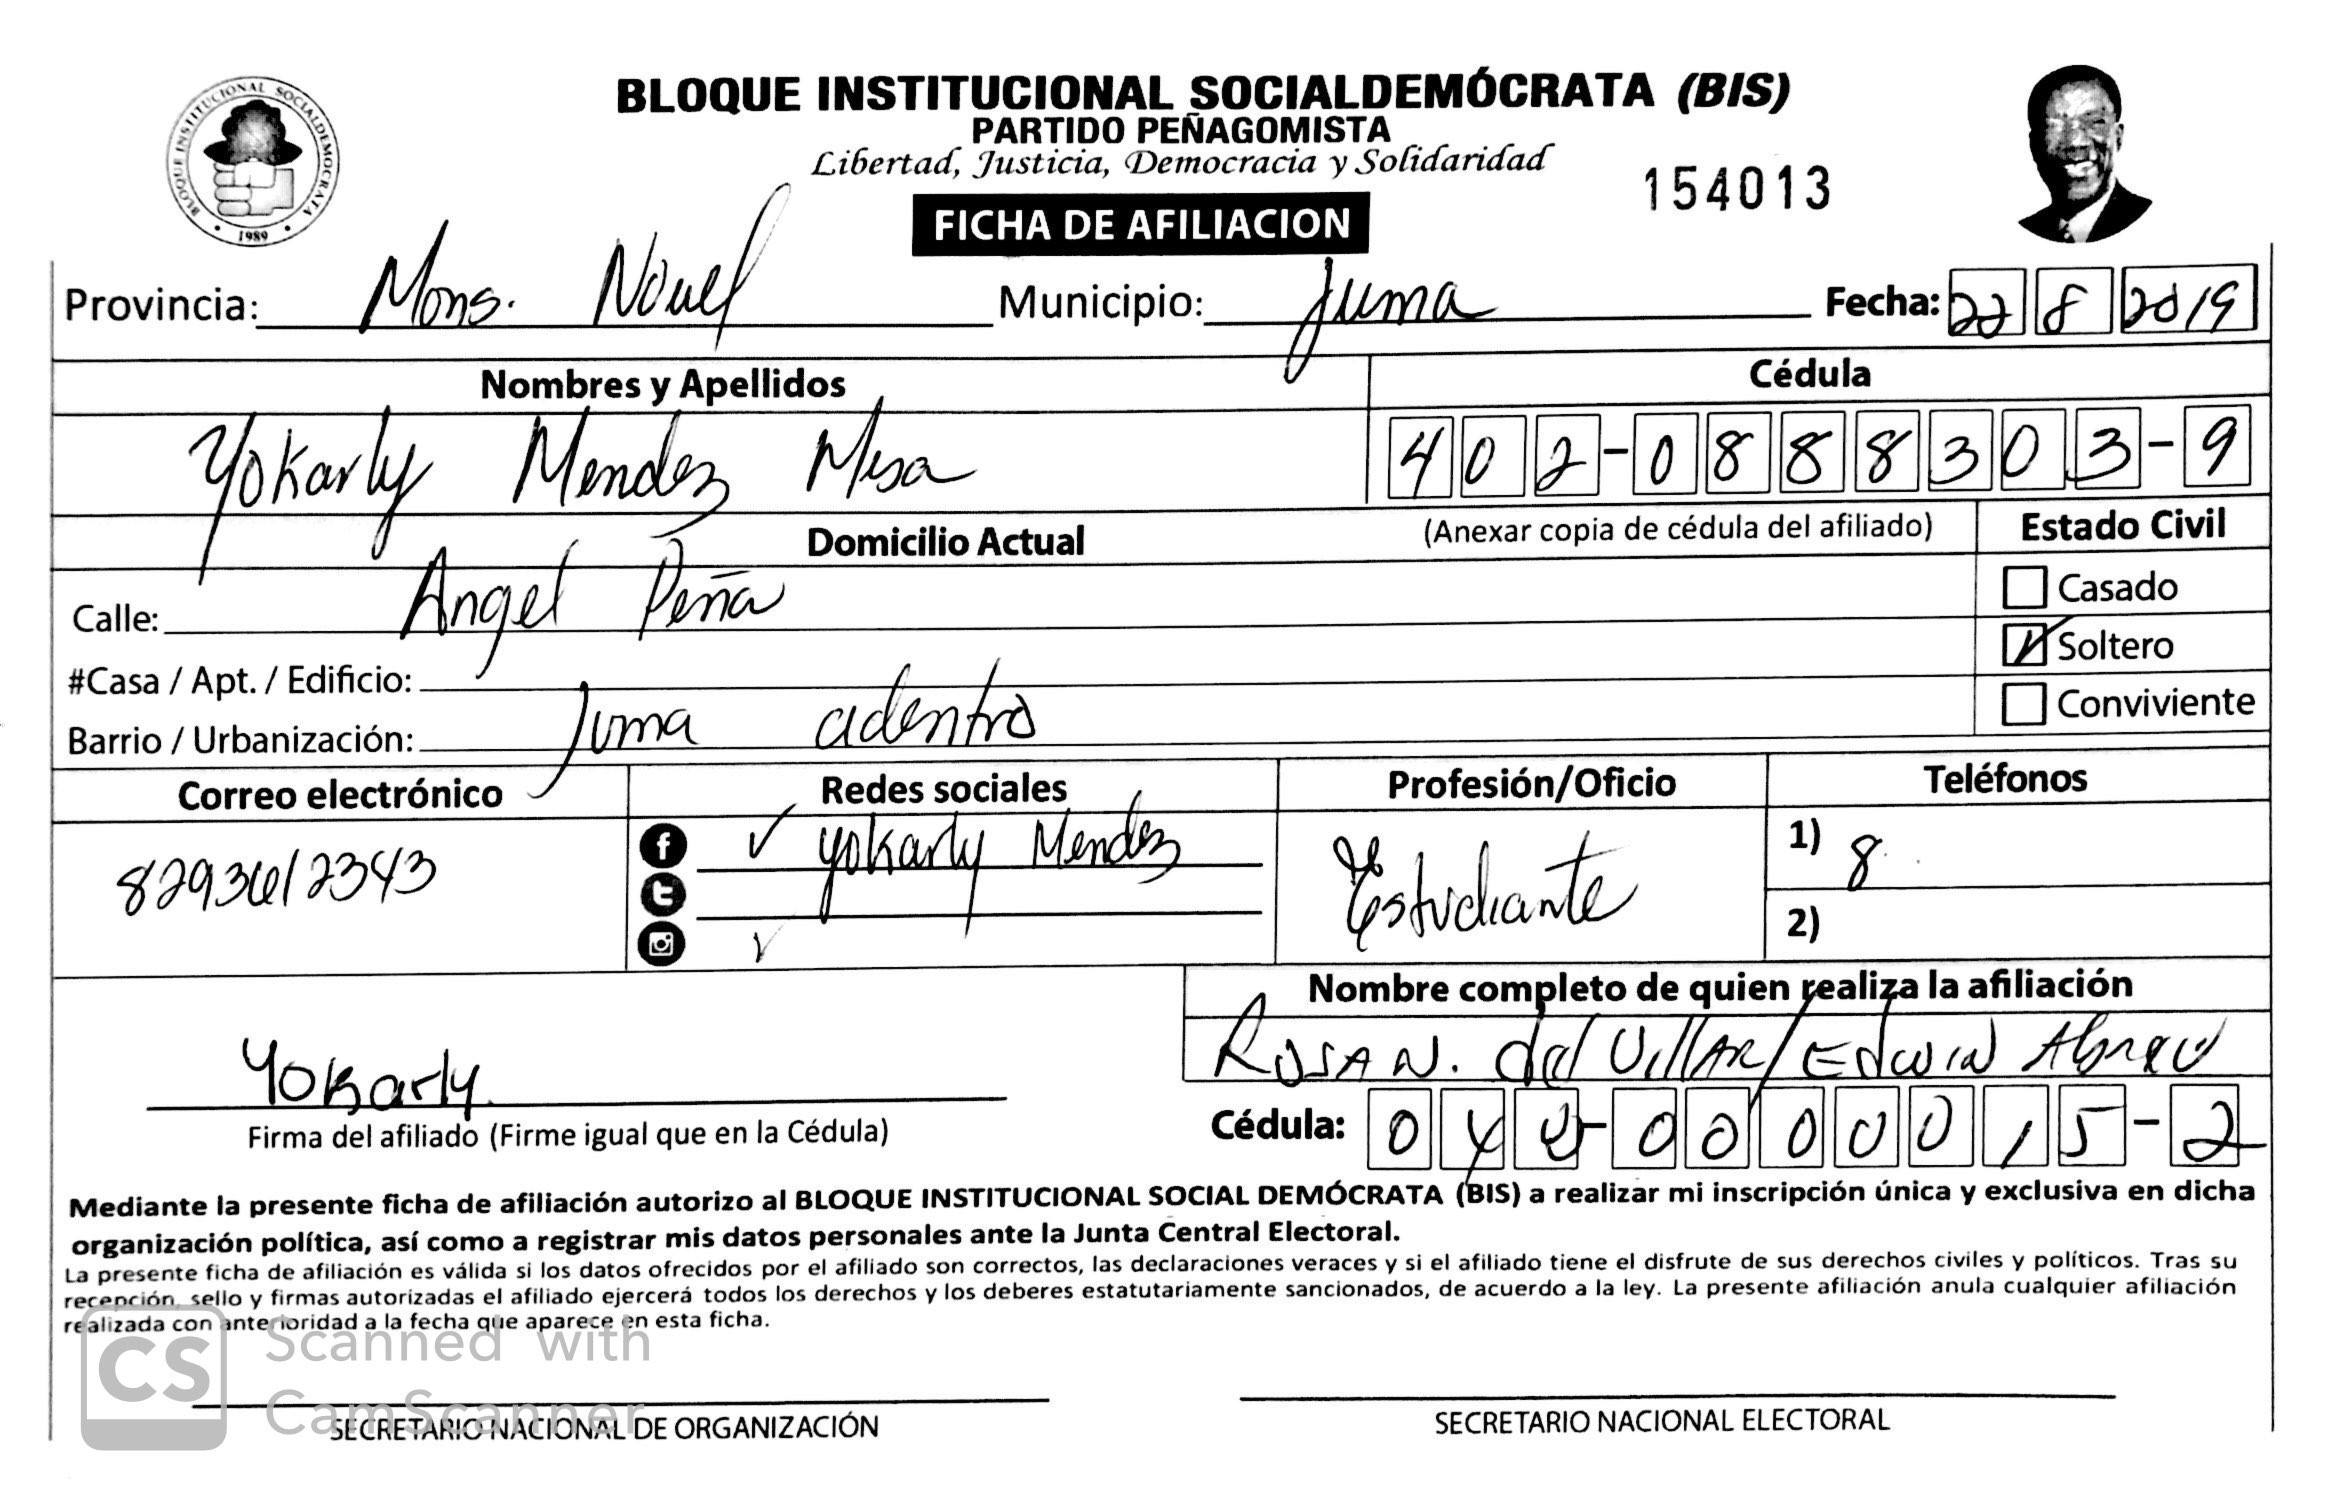 BLOQUE INSTITUCIONAL SOCIALDEMÓCRATA (BIS)
PARTIDO PEÑAGOMISTA
Libertad, Justicia, Democracia y Solidaridad
BLOQUE INSTITUCIONAL SOCIALDEMOCRATA
1989
154013
FICHA DE AFILIACION
Provincia: Mons. Nouel Municipio: Juma Fecha: 22 8 2019
Nombres y Apellidos Cédula
Yokarly Mendez Mesa 402-0888303-9
Domicilio Actual (Anexar copia de cédula del afiliado) Estado Civil
Calle: Angel Peña Casado
Soltero
#Casa / Apt. / Edificio:
Conviviente
Barrio / Urbanización: Juma adentro
Correo electrónico Redes sociales Profesión/Oficio Teléfonos
8293612343 Yokarly Mendez Estudiante 1) 8
2)
Nombre completo de quien realiza la afiliación
Rosa N. del Villar/Edwin Abreu
Yokarly
Firma del afiliado (Firme igual que en la Cédula) Cédula:
Mediante la presente ficha de afiliación autorizo al BLOQUE INSTITUCIONAL SOCIAL DEMÓCRATA (BIS) a realizar mi inscripción única y exclusiva en dicha
organización política, así como a registrar mis datos personales ante la Junta Central Electoral.
La presente ficha de afiliación es válida si los datos ofrecidos por el afiliado son correctos, las declaraciones veraces y si el afiliado tiene el disfrute de sus derechos civiles y políticos. Tras su
recepción, sello y firmas autorizadas el afiliado ejercerá todos los derechos y los deberes estatutariamente sancionados, de acuerdo a la ley. La presente afiliación anula cualquier afiliación
realizada con anterioridad a la fecha que aparece en esta ficha.
CS Scanned with
CamScanner
SECRETARIO NACIONAL DE ORGANIZACIÓN SECRETARIO NACIONAL ELECTORAL